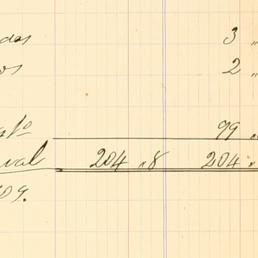 das 3 "
os 2 "
99
val 204 " 8 204 "
09.